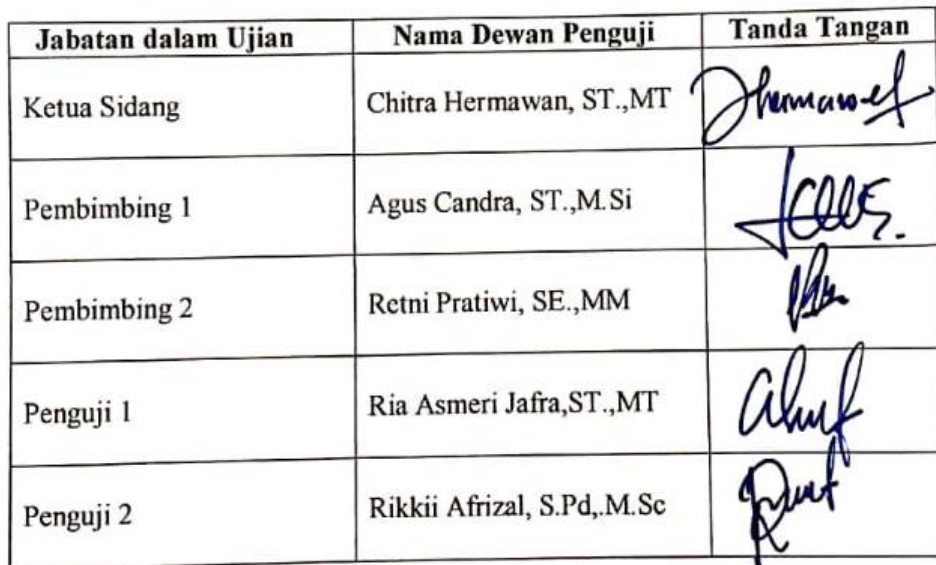 Jabatan dalam Ujian Nama Dewan Penguji Tanda Tangan
Ketua Sidang Chitra Hermawan, ST.,MT
Pembimbing 1 Agus Candra, ST.,M.Si
Pembimbing 2 Retni Pratiwi, SE.,MM
Penguji 1 Ria Asmeri Jafra,ST.,MT
Penguji 2 Rikkii Afrizal, S.Pd,.M.Sc